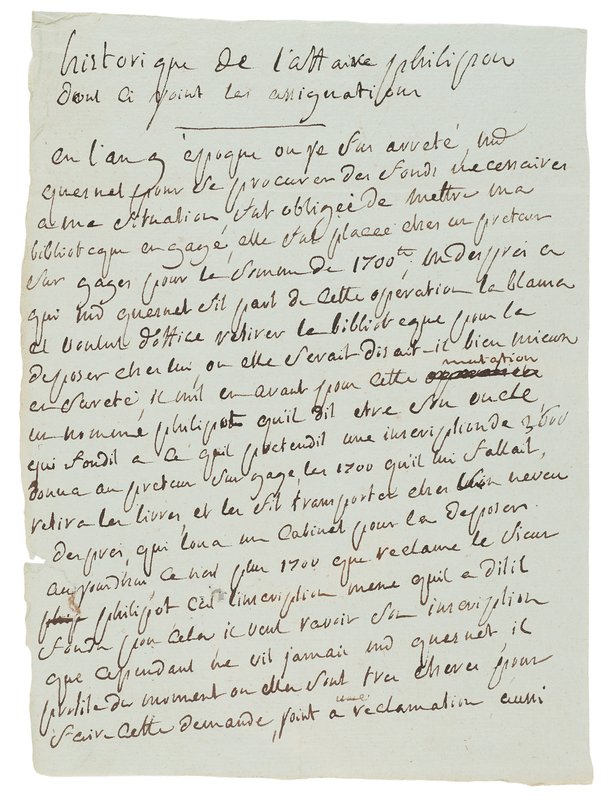 historique de l'affaire philipon
dont ci joint les assignations
en l'an 9 époque ou je fus arreté, md
quesnet pour se procurer des fonds necessaires
a ma situation, fut obligée de mettre ma
biblioteque en gage, elle fut placée ches un preteur
sur gages pour la somme de 1700tt, un desprei a
qui md quesnet fit part de cette operation la blama
et voulut d'office retirer la biblioteque pour la
deposer ches lui, ou elle serait disait-il bien mieux
en sureté, il mit en avant pour cette mutation
un nommé philipot qu'il dit etre son oncle
qui fondit a ce qu'il pretendit une inscription de
donna au preteur sur gage les 1700 qu'il lui fallait,
retira les livres, et les fit transporter ches neveu
desprei, qui loua un cabinet pour les deposer.
aujourdhui ce nest plus 1700 que reclame le sieur
philipot cest l'inscription meme quil a dit-il
fondu pour cela il veut ravoir son inscription
que cependant ne vit jamais md quesnet, il
profite du moment ou elles sont tres cheres pour
faire cette demande, joint a une reclamation aussi